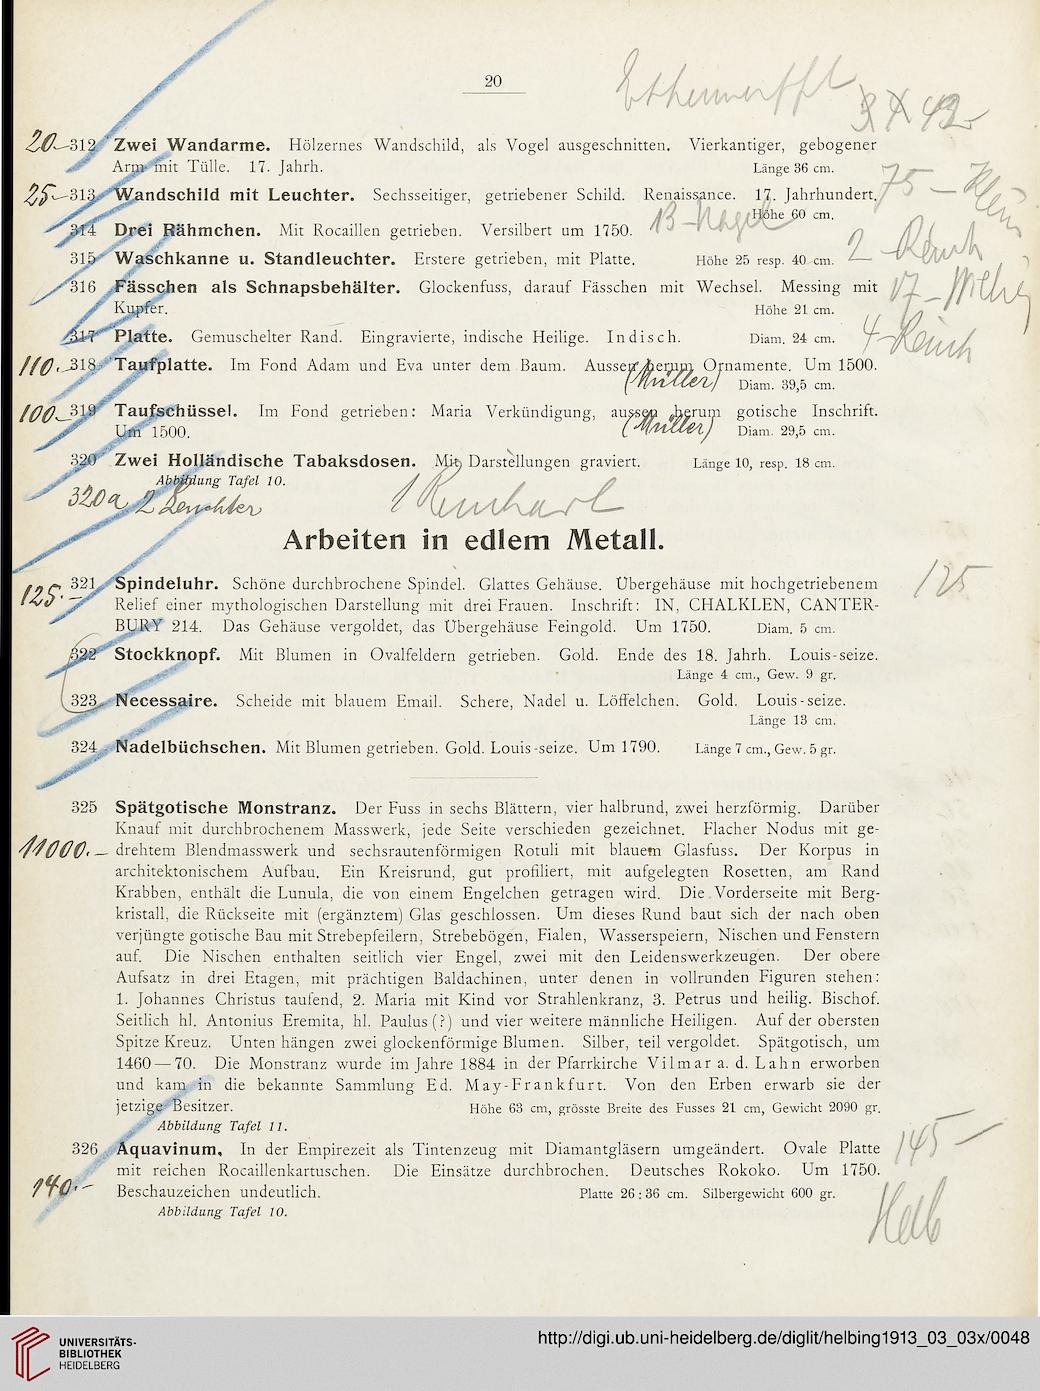 20
42-
20.- 312 Zwei Wandarme. Hölzernes Wandschild, als Vogel ausgeschnitten. Vierkantiger, gebogener
Arm mit Tülle. 17. Jahrh. Länge 36 cm.
25.- 313 Wandschild mit Leuchter. Sechsseitiger, getriebener Schild. Renaissance. 17. Jahrhundert. 75 - Klein
Höhe 60 cm.
314 Drei Rähmchen. Mit Rocaillen getrieben. Versilbert um 1750. 13 - Nagel
315 Waschkanne u. Standleuchter. Erstere getrieben, mit Platte. Höhe 25 resp. 40 cm. 2 -
316 Fässchen als Schnapsbehälter. Glockenfuss, darauf Fässchen mit Wechsel. Messing mit 17 -
Kupfer. Höhe 21 cm.
317 Platte. Gemuschelter Rand. Eingravierte, indische Heilige. Indisch. Diam. 24 cm. 4 -
110.- 318 Taufplatte. Im Fond Adam und Eva unter dem Baum. Aussen herum Ornamente. Um 1500.
(Müller) Diam. 39,5 cm.
100.- 319 Taufschüssel. Im Fond getrieben: Maria Verkündigung, aussen herum gotische Inschrift.
Um 1500. (Müller) Diam. 29,5 cm.
320 Zwei Holländische Tabaksdosen. Mit Darstellungen graviert. Länge 10, resp. 18 cm.
Abbildung Tafel 10.
320a 2 Leuchter
Arbeiten in edlem Metall.
125.- 321 Spindeluhr. Schöne durchbrochene Spindel. Glattes Gehäuse. Übergehäuse mit hochgetriebenem 125
Relief einer mythologischen Darstellung mit drei Frauen. Inschrift: IN, CHALKLEN, CANTER-
BURY 214. Das Gehäuse vergoldet, das Übergehäuse Feingold. Um 1750. Diam. 5 cm.
322 Stockknopf. Mit Blumen in Ovalfeldern getrieben. Gold. Ende des 18. Jahrh. Louis-seize.
Länge 4 cm., Gew. 9 gr.
323 Necessaire. Scheide mit blauem Email. Schere, Nadel u. Löffelchen. Gold. Louis-seize.
Länge 13 cm.
324 Nadelbüchschen. Mit Blumen getrieben. Gold. Louis-seize. Um 1790. Länge 7 cm., Gew. 5 gr.
325 Spätgotische Monstranz. Der Fuss in sechs Blättern, vier halbrund, zwei herzförmig. Darüber
Knauf mit durchbrochenem Masswerk, jede Seite verschieden gezeichnet. Flacher Nodus mit ge-
11000.- drehtem Blendmasswerk und sechsrautenförmigen Rotuli mit blauem Glasfuss. Der Korpus in
architektonischem Aufbau. Ein Kreisrund, gut profiliert, mit aufgelegten Rosetten, am Rand
Krabben, enthält die Lunula, die von einem Engelchen getragen wird. Die Vorderseite mit Berg-
kristall, die Rückseite mit (ergänztem) Glas geschlossen. Um dieses Rund baut sich der nach oben
verjüngte gotische Bau mit Strebepfeilern, Strebebögen, Fialen, Wasserspeiern, Nischen und Fenstern
auf. Die Nischen enthalten seitlich vier Engel, zwei mit den Leidenswerkzeugen. Der obere
Aufsatz in drei Etagen, mit prächtigen Baldachinen, unter denen in vollrunden Figuren stehen:
1. Johannes Christus taufend, 2. Maria mit Kind vor Strahlenkranz, 3. Petrus und heilig. Bischof.
Seitlich hl. Antonius Eremita, hl. Paulus (?) und vier weitere männliche Heiligen. Auf der obersten
Spitze Kreuz. Unten hängen zwei glockenförmige Blumen. Silber, teil vergoldet. Spätgotisch, um
1460—70. Die Monstranz wurde im Jahre 1884 in der Pfarrkirche Vilmar a. d. Lahn erworben
und kam in die bekannte Sammlung Ed. May-Frankfurt. Von den Erben erwarb sie der
jetzige Besitzer. Höhe 63 cm, grösste Breite des Fusses 21 cm, Gewicht 2090 gr.
Abbildung Tafel 11.
326 Aquavinum, In der Empirezeit als Tintenzeug mit Diamantgläsern umgeändert. Ovale Platte 145 -
mit reichen Rocaillenkartuschen. Die Einsätze durchbrochen. Deutsches Rokoko. Um 1750.
140.- Beschauzeichen undeutlich. Platte 26:36 cm. Silbergewicht 600 gr.
Abbildung Tafel 10.
UNIVERSITÄTS-
BIBLIOTHEK
HEIDELBERG
http://digi.ub.uni-heidelberg.de/diglit/helbing1913_03_03x/0048